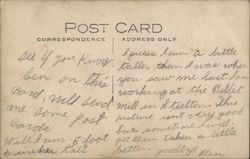 POST CARD
CORRESPONDENCE
ADDRESS ONLY
See if you know
on this
Card, Will send
me some Post
Cards
Will I am 5 foot
inches tall
I guess I am a little
taller than I was when
you saw me last I am
working at the
Mill in Steelton. This
picture isn't very good
but sometime I will
get them taken a little
better. goodbye